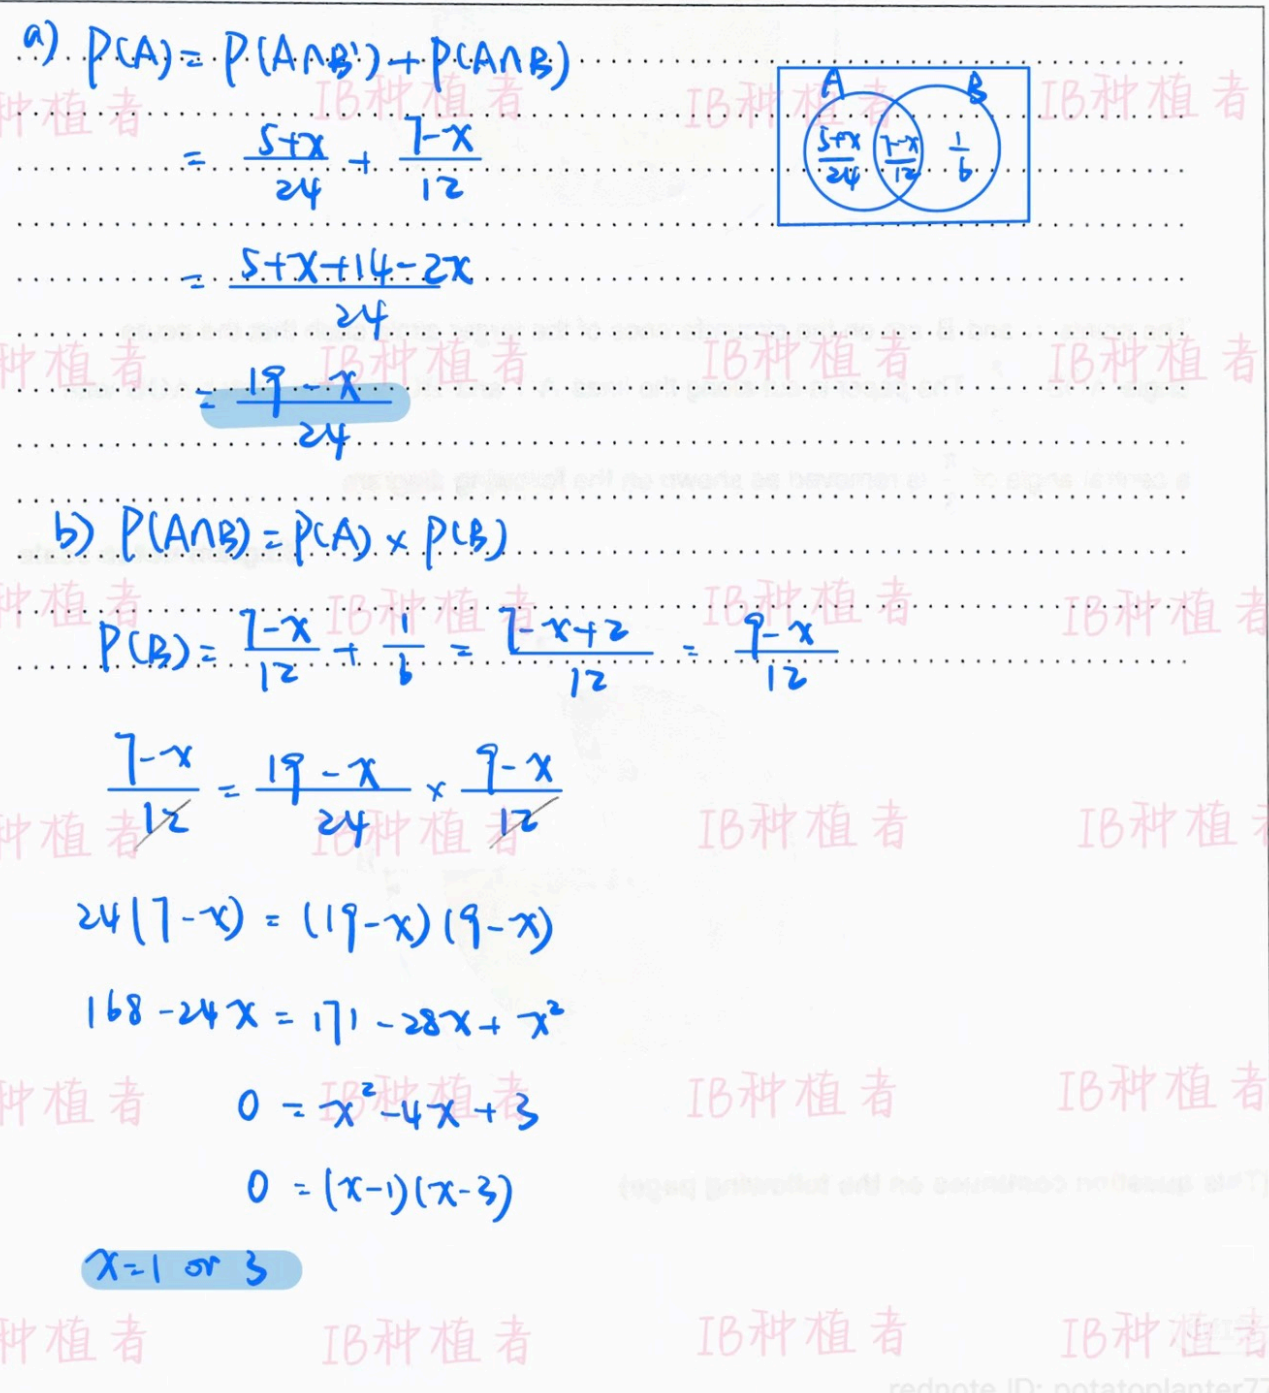 a) P(A) = P(A∩B') + P(A∩B)
= 5+x/24 + 7-x/12
A B
5+x/24 7-x/12 1/6
= 5+x+14-2x/24
= 19-x/24
b) P(A∩B) = P(A) × P(B)
P(B) = 7-x/12 + 1/6 = 7-x+2/12 = 9-x/12
7-x/12 = 19-x/24 × 9-x/12
24(7-x) = (19-x)(9-x)
168-24x = 171-28x+x²
0 = x²-4x+3
0 = (x-1)(x-3)
x=1 or 3
IB种植者
rednote ID: potatoplanter77